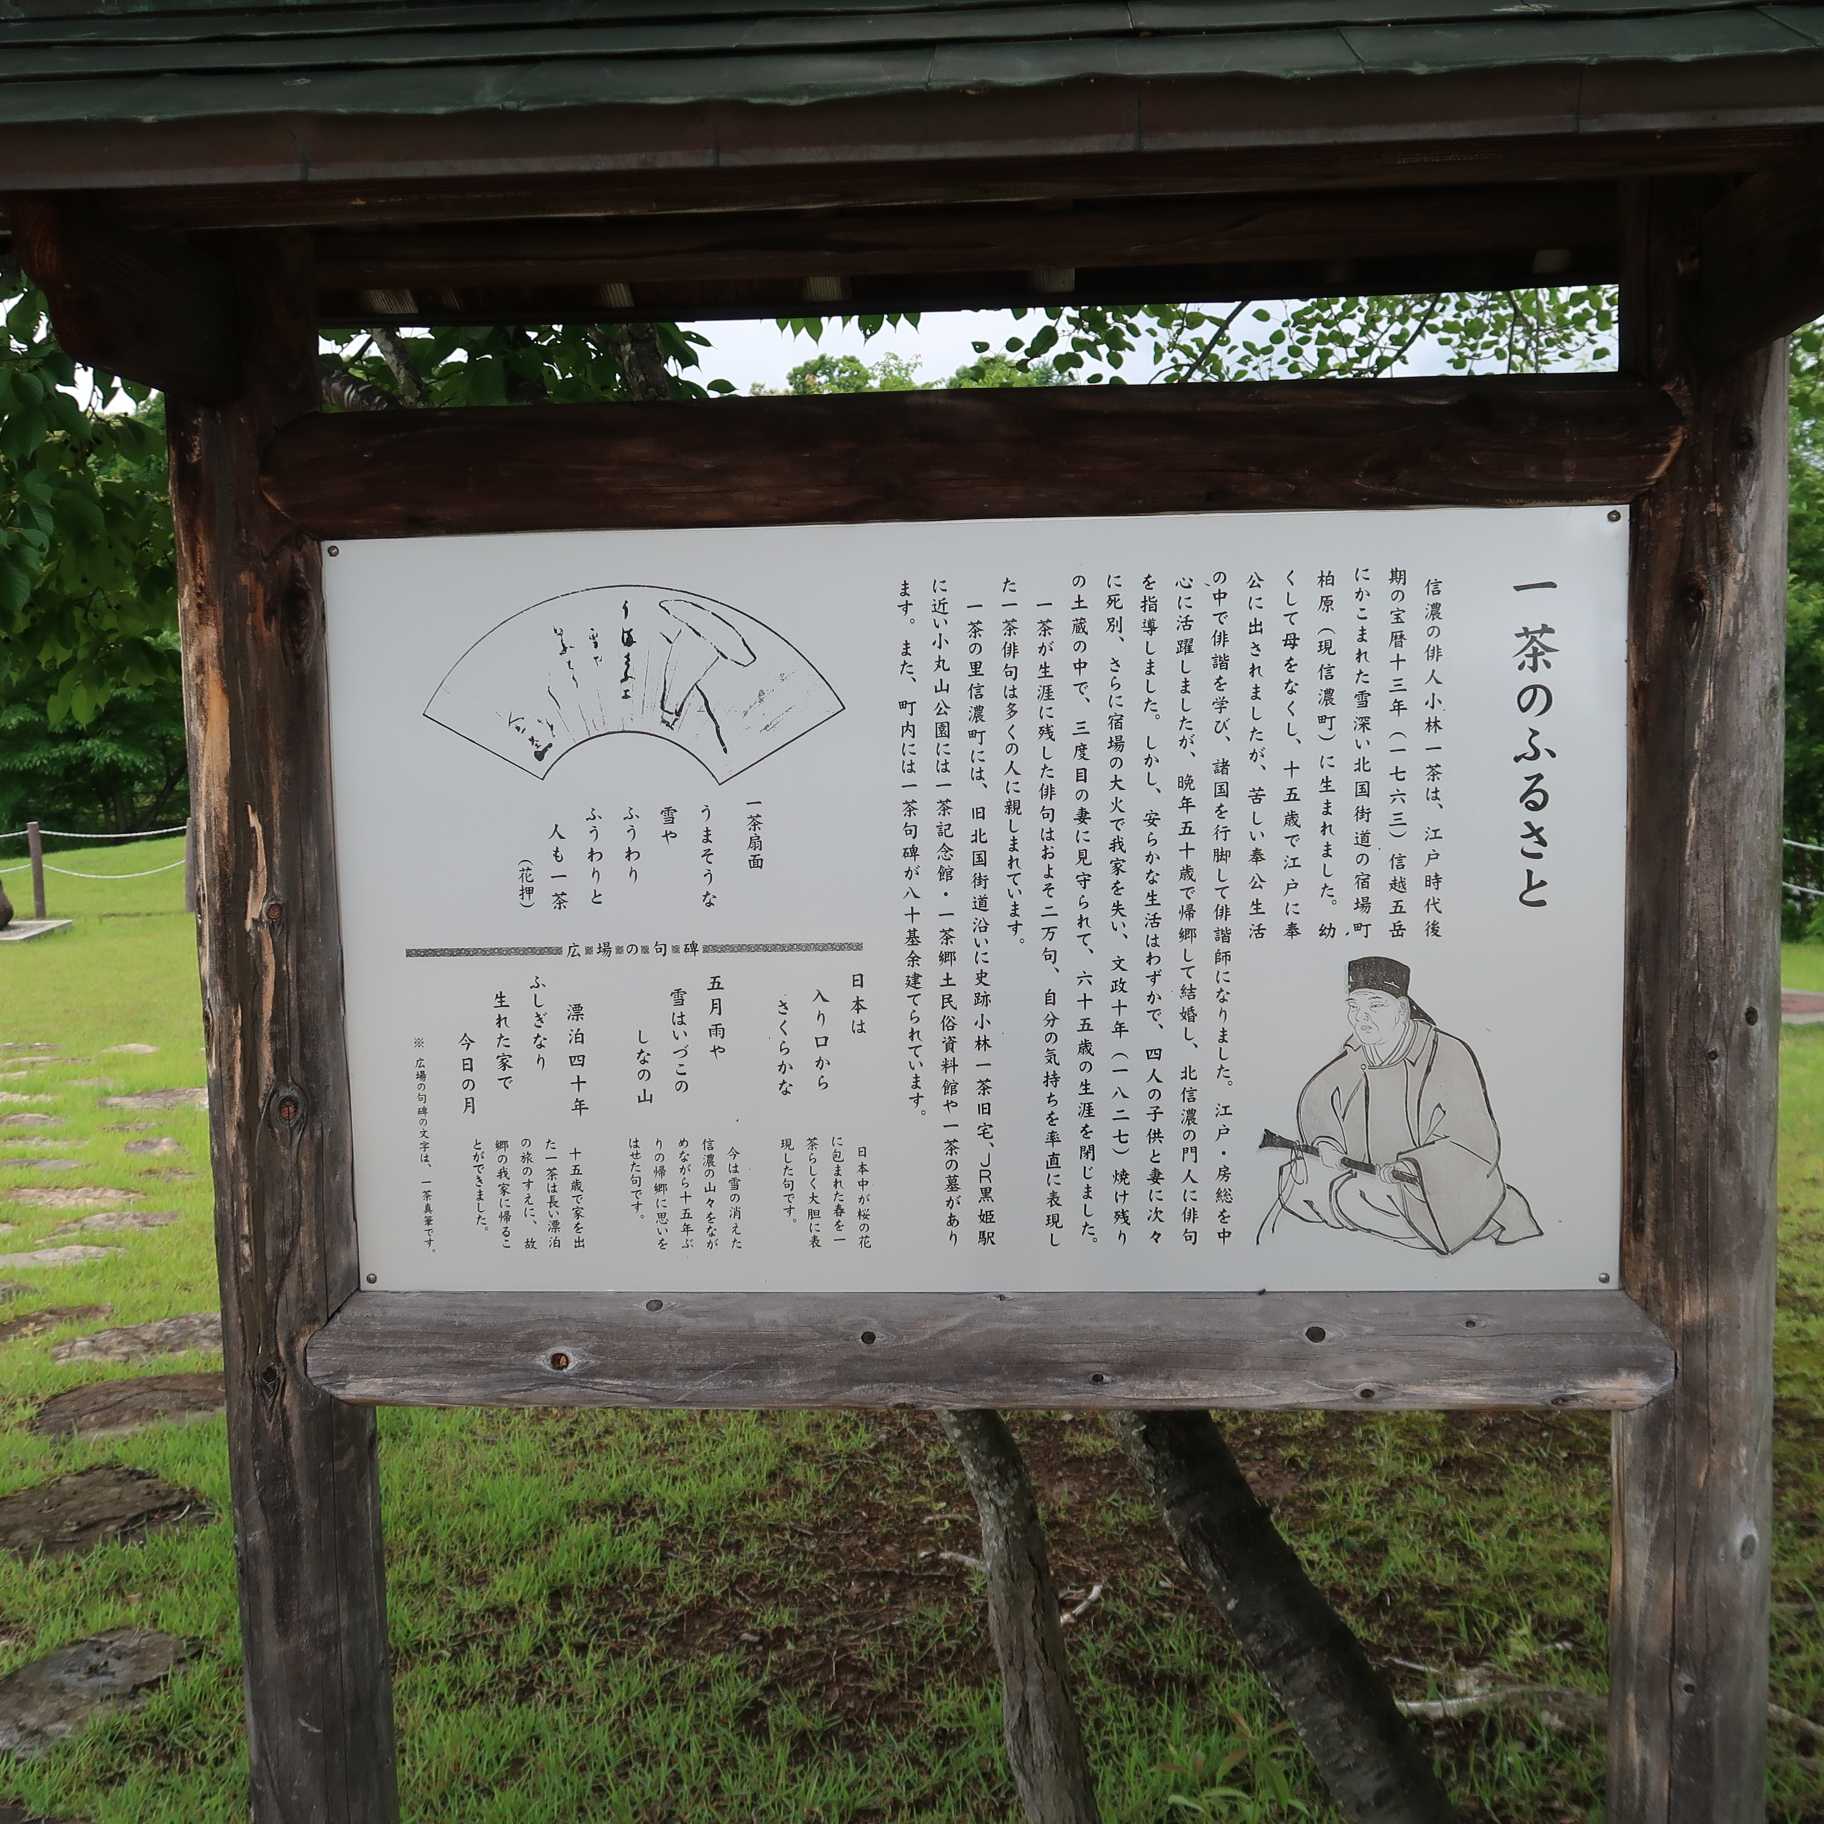 一茶のふるさと
信濃の俳人小林一茶は、江戸時代後
期の宝暦十三年（一七六三）信越五岳
にかこまれた雪深い北国街道の宿場町
柏原（現信濃町）に生まれました。幼
くして母をなくし、十五歳で江戸に奉
公に出されましたが、苦しい奉公生活
の中で俳諧を学び、諸国を行脚して俳諧師になりました。江戸・房総を中
心に活躍しましたが、晩年五十歳で帰郷して結婚し、北信濃の門人に俳句
を指導しました。しかし、安らかな生活はわずかで、四人の子供と妻に次々
に死別、さらに宿場の大火で我家を失い、文政十年（一八二七）焼け残り
の土蔵の中で、三度目の妻に見守られて、六十五歳の生涯を閉じました。
一茶が生涯に残した俳句はおよそ二万句、自分の気持ちを率直に表現し
た一茶俳句は多くの人に親しまれています。
一茶の里信濃町には、旧北国街道沿いに史跡小林一茶旧宅、JR黒姫駅
に近い小丸山公園には一茶記念館・一茶郷土民俗資料館や一茶の墓があり
ます。また、町内には一茶句碑が八十基余建てられています。
一茶扇面
うまそうな
雪や
ふうわり
ふうわりと
人も一茶
（花押）
広場の句碑
日本は
入り口から
さくらかな
日本中が桜の花
に包まれた春を一
茶らしく大胆に表
現した句です。
五月雨や
雪はいづこの
しなの山
今は雪の消えた
信濃の山々をなが
めながら十五年ぶ
りの帰郷に思いを
はせた句です。
漂泊四十年
ふしぎなり
生れた家で
今日の月
十五歳で家を出
た一茶は長い漂泊
の旅のすえに、故
郷の我家に帰るこ
とができました。
※ 広場の句碑の文字は、一茶真筆です。